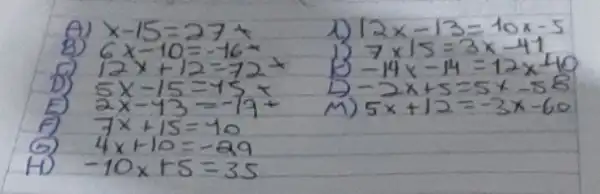 A) x-15=27
B) 6x-10=-16
C) 12x+12=72
D) 5x-15=15
E) 2x-13=-19
F) 7x+15=10
G) 4x+10=-29
H) -10x+5=35
I) 12x-13=10x-5
J) 7x15=3x-41
K) -14x-14=12x+40
L) -2x+5=5x-58
M) 5x+12=-3x-60